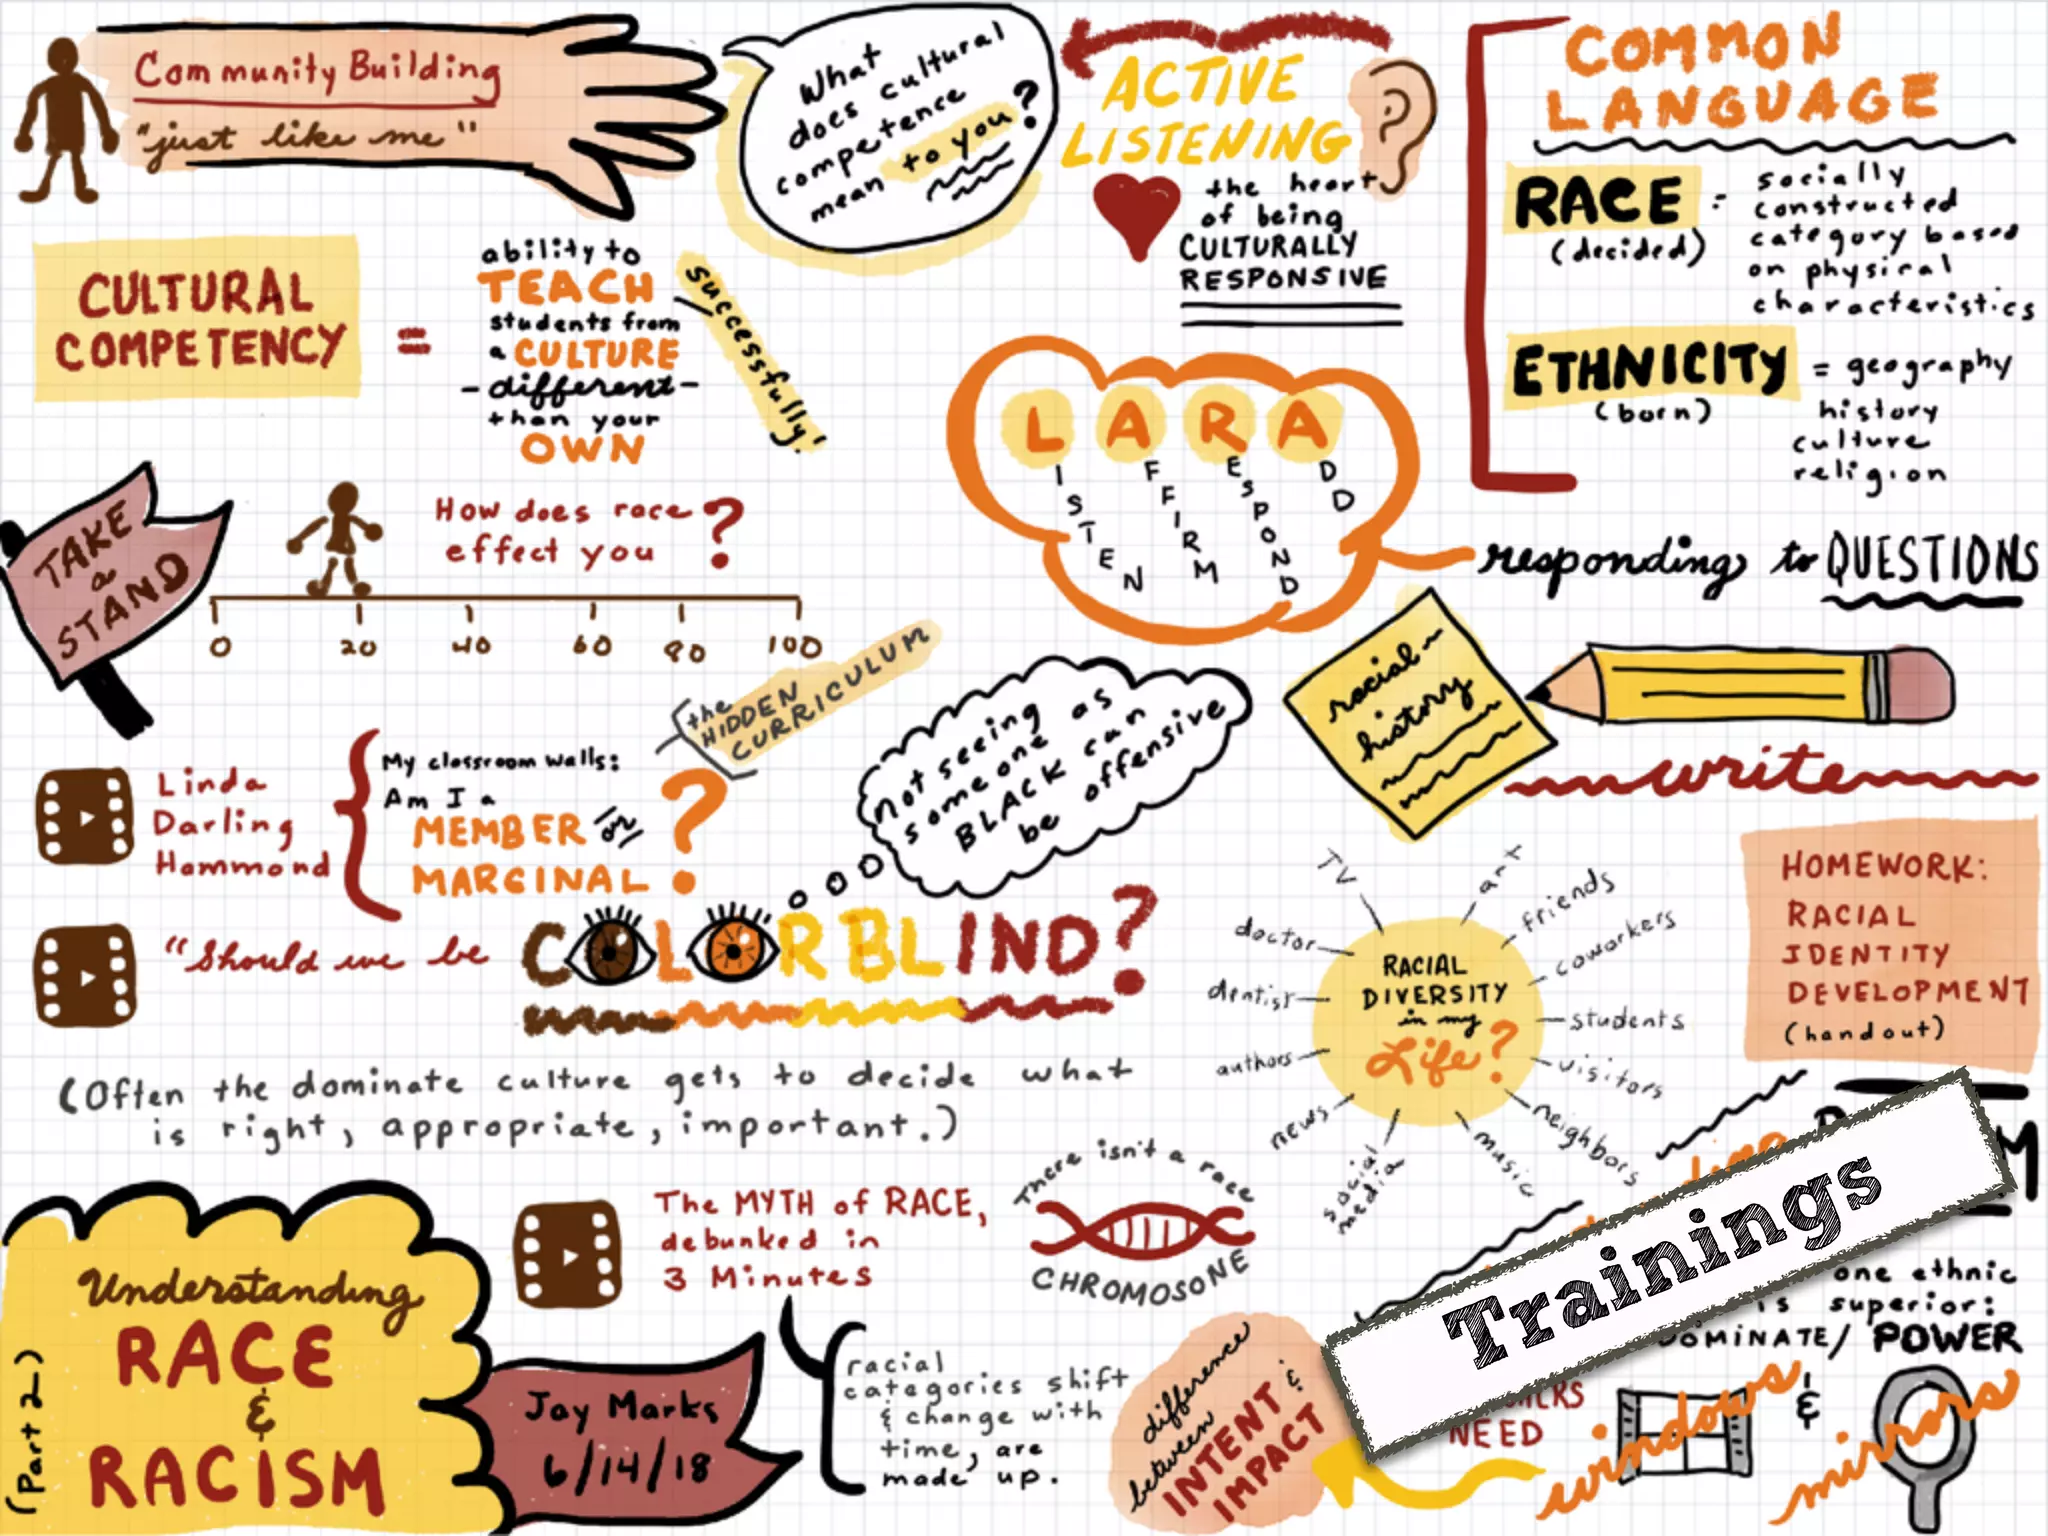 Community Building
"just like me"
What
does cultural
competence
mean to you?
ACTIVE
LISTENING
the heart
of being
CULTURALLY
RESPONSIVE
COMMON
LANGUAGE
RACE
(decided)
: socially
constructed
category based
on physical
characteristics
ETHNICITY
(born)
= geography
history
culture
religion
CULTURAL
COMPETENCY
=
ability to
TEACH
students from
a CULTURE
-different-
than your
OWN
successfully!
LARA
LISTEN
AFFIRM
RESPOND
ADD
responding to QUESTIONS
TAKE
a
STAND
How does race
effect you?
0 20 40 60 80 100
the
HIDDEN
CURRICULUM
Linda
Darling
Hammond
My classroom walls:
Am I a
MEMBER or
MARGINAL?
Not seeing
someone as
BLACK can
be offensive
racial
history
write
"Should we be
COLORBLIND?
(Often the dominate culture gets to decide what
is right, appropriate, important.)
RACIAL
DIVERSITY
in my
Life?
TV
art
friends
coworkers
students
visitors
neighbors
music
social
media
news
authors
dentist
doctor
HOMEWORK:
RACIAL
IDENTITY
DEVELOPMENT
(handout)
Understanding
RACE
&
RACISM
(Part 2)
Jay Marks
6/14/18
The MYTH of RACE,
debunked in
3 Minutes
There isn't a race
CHROMOSONE
racial
categories shift
& change with
time, are
made up.
difference
between
INTENT &
IMPACT
Trainings
one ethnic
is superior:
DOMINATE/ POWER
NEED
windows
&
mirrors